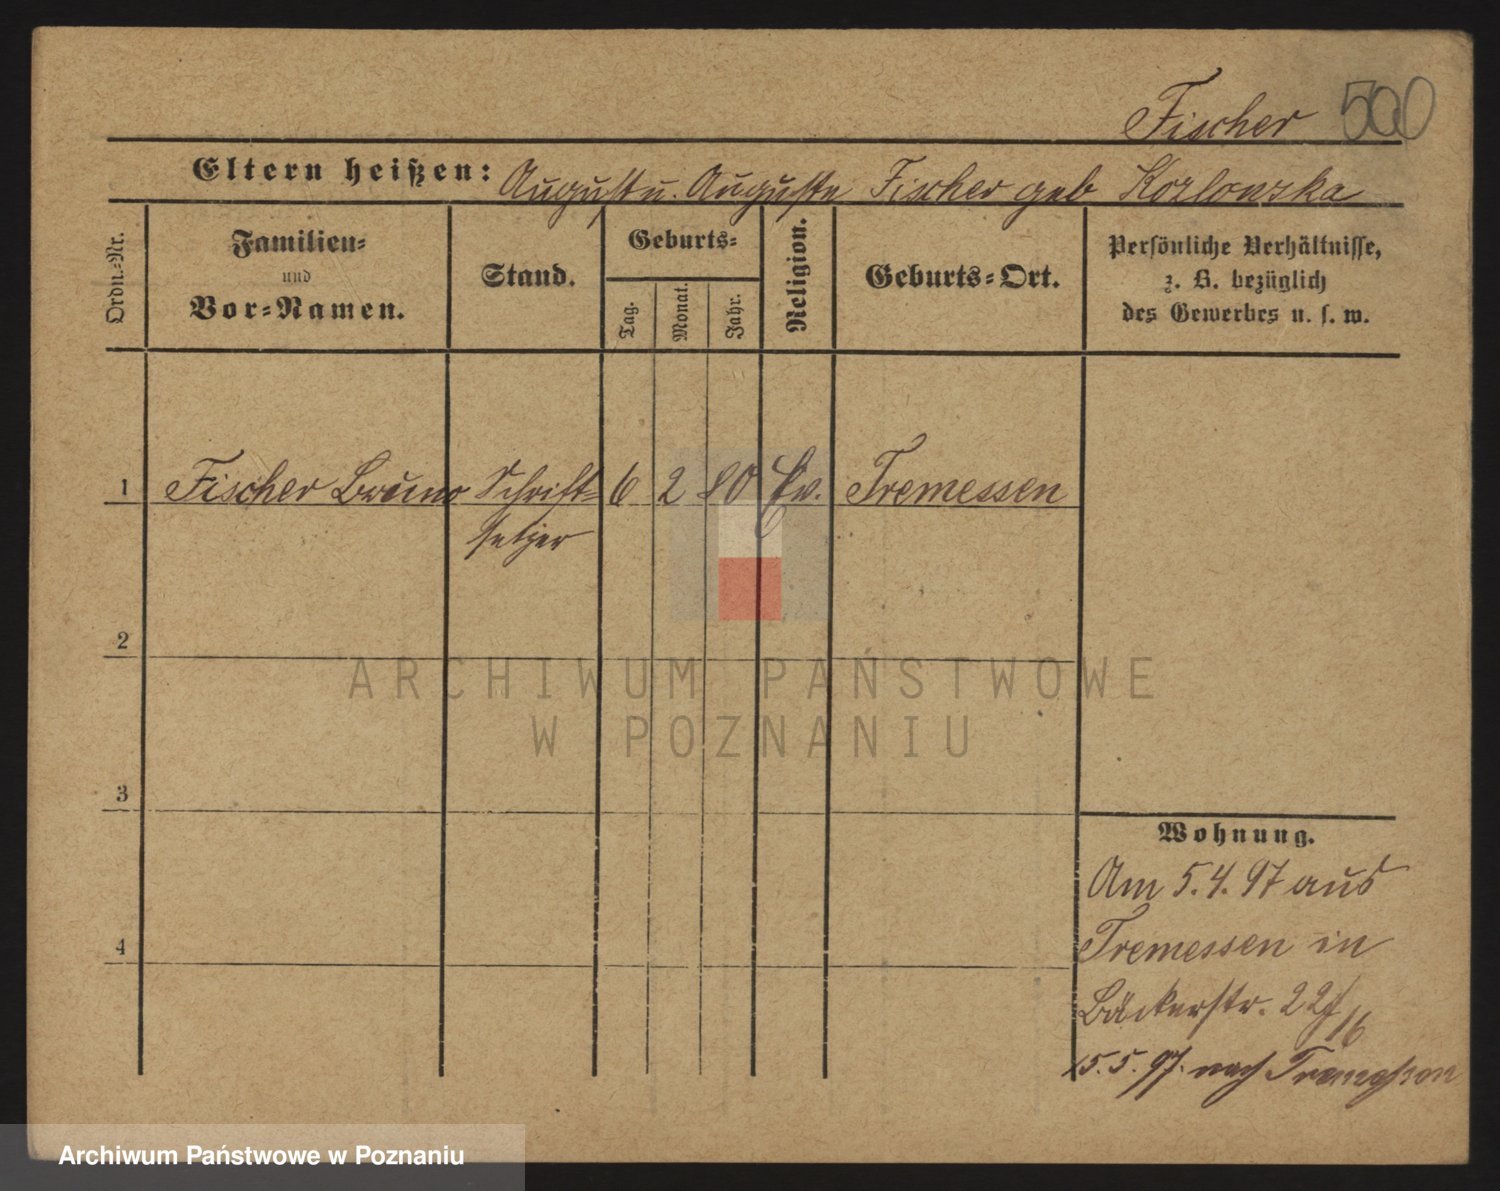 Fischer 500
Eltern heißen: August u. Auguste Fischer geb Kozlowska
Ordn.-Nr.
Familien-
und
Vor-Namen.
Stand.
Geburts-
Tag.
Monat.
Jahr.
Religion.
Geburts-Ort.
Persönliche Verhältnisse,
z. B. bezüglich
des Gewerbes u. s. w.
1 Fischer Bruno Schrift- 6 2 80 Ev. Tremessen
setzer
2
ARCHIWUM PAŃSTWOWE
W POZNANIU
3
Wohnung.
Am 5.4.97 aus
4
Tremessen in
Bäckerstr. 22
16
15.5.97. nach Tremessen
Archiwum Państwowe w Poznaniu